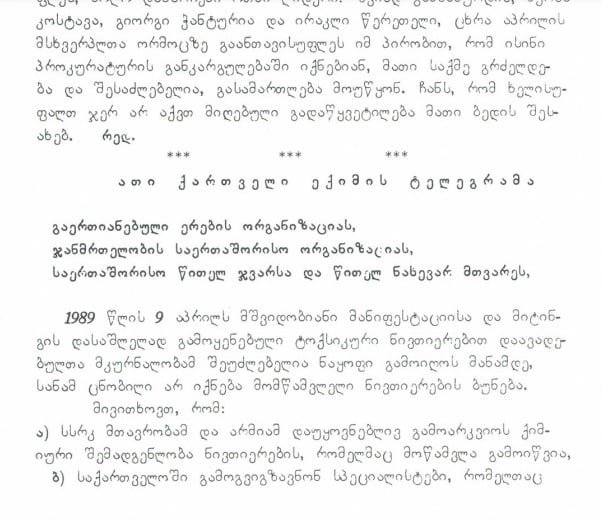 კოსტავა, გიორგი ჭანტურია და ირაკლი წერეთელი, ცხრა აპრილის
მსხვერპლთა ორმოცზე გაანთავისუფლეს იმ პირობით, რომ ისინი
პროკურატურის განკარგულებაში იქნებიან, მათი საქმე გრძელდე-
ბა და შესაძლებელია, გასამართლება მოუწყონ. ჩანს, რომ ხელისუ-
ფალთ ჯერ არ აქვთ მიღებული გადაწყვეტილება მათი ბედის შეს-
ახებ. რედ.
*** *** ***
ათი ქართველი ექიმის ტელეგრამა
გაერთიანებული ერების ორგანიზაციას,
ჯანმრთელობის საერთაშორისო ორგანიზაციას,
საერთაშორისო წითელ ჯვარსა და წითელ ნახევარ მთვარეს,
1989 წლის 9 აპრილს მშვიდობიანი მანიფესტაციისა და მიტინ-
გის დასაშლელად გამოყენებული ტოქსიკური ნივთიერებით დაავადე-
ბულთა მკურნალობამ შეუძლებელია ნაყოფი გამოიღოს მანამდე,
სანამ ცნობილი არ იქნება მომწამვლელი ნივთიერების ბუნება.
მივითხოვთ, რომ:
ა) სსრკ მთავრობამ და არმიამ დაუყოვნებლივ გამოარკვიოს ქიმ-
იური შემადგენლობა ნივთიერების, რომელმაც მოწამვლა გამოიწვია,
ბ) საქართველოში გამოგვიგზავნონ სპეციალისტები, რომელთაც